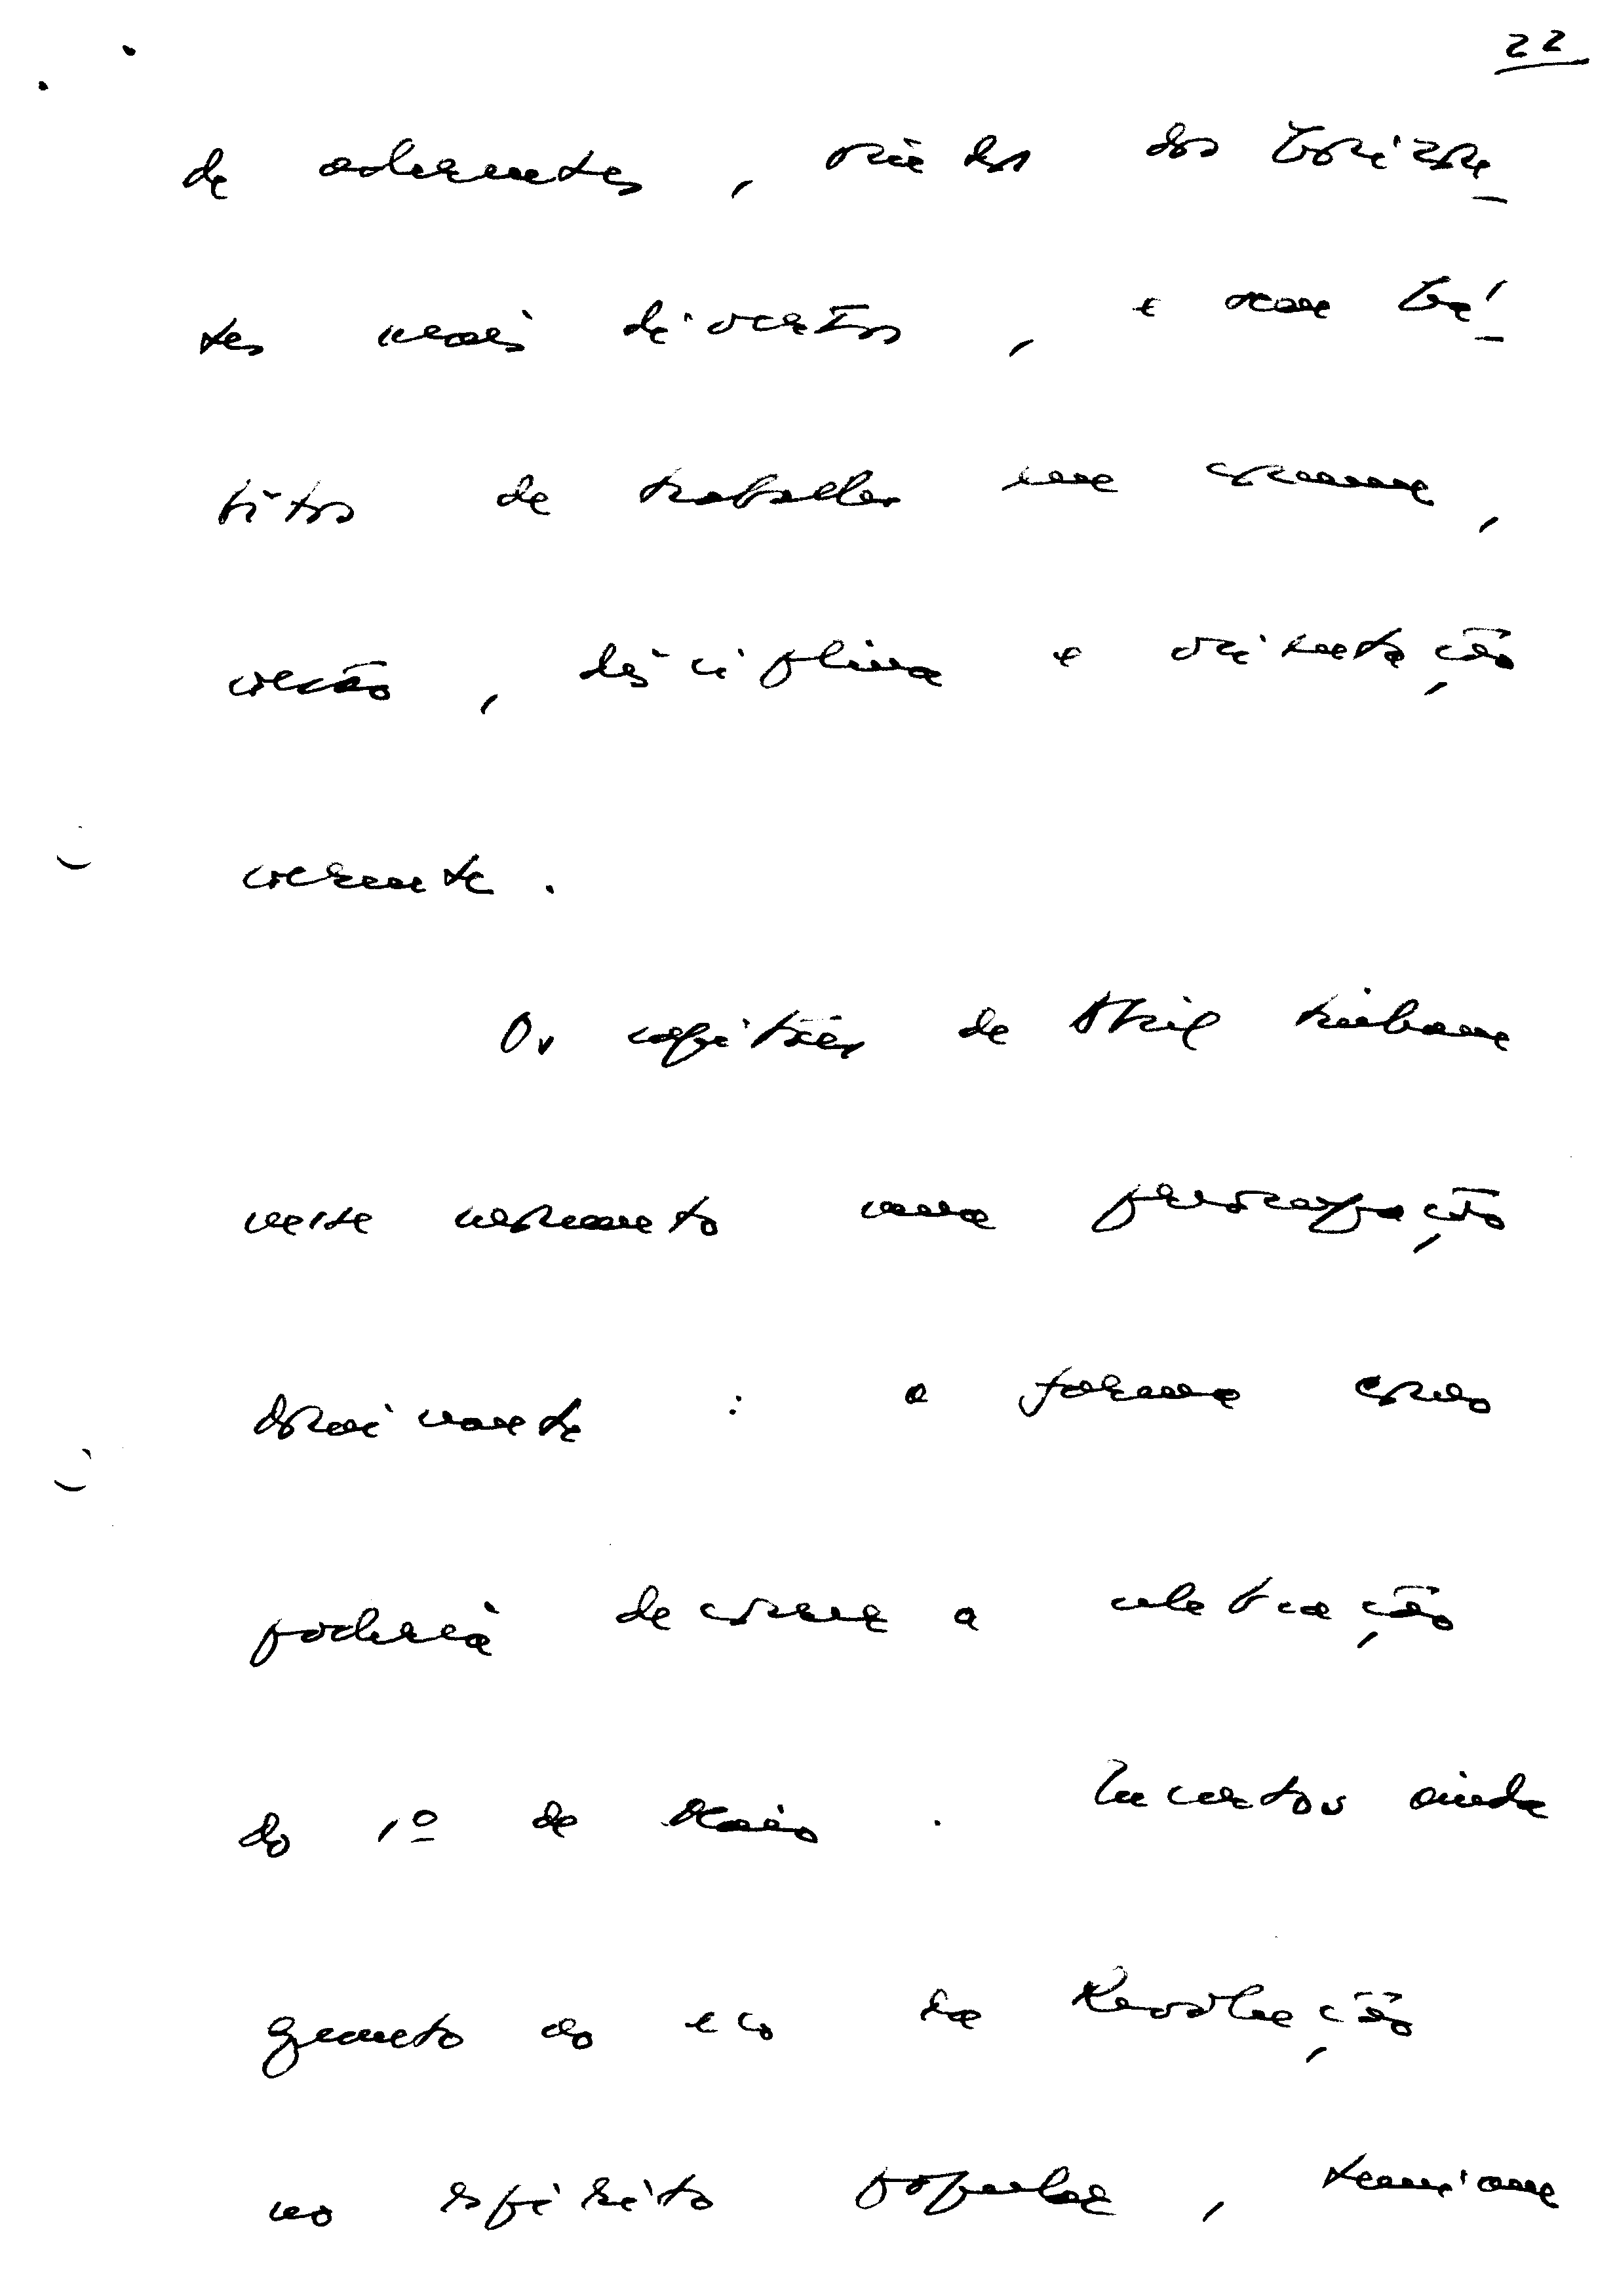 22
de aderentes, oriundos dos horizon_
tes mais diversos, e sem há_
bitos de trabalho em comum,
coesão, disciplina e orientação
coerente.
Os capitães de Abril tinham
neste momento uma preocupação
dominante : a forma como
poderia decorrer a celebração
do 1º de Maio . Incertos ainda
quanto ao eco da Revolução
no espírito popular, temiam